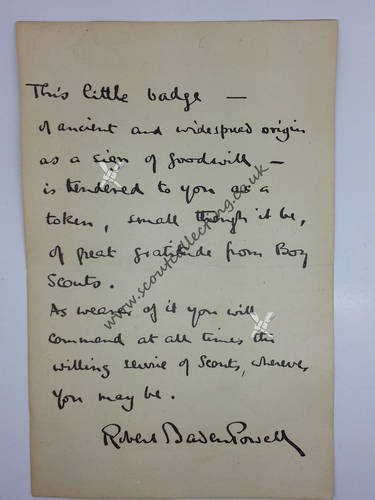 This little badge —
of ancient and widespread origin
as a sign of goodwill —
is tendered to you as a
token, small though it be,
of great gratitude from Boy
Scouts.
As wearer of it you will
command at all times the
willing service of Scouts, wherever
you may be.
Robert Baden Powell
www.scoutcollecting.co.uk